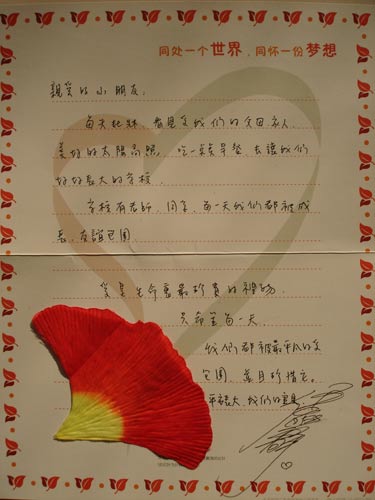 同处一个世界，同怀一份梦想
親愛的小朋友：
每天起床，看見愛我們的父母家人
美好的太陽高照，吃一頓早餐，去讓我們
好好長大的學校
學校有老師、同學，每一天我們都被成
長、友誼包圍
愛是生命裏最珍貴的禮物
只希望每一天
我們都被最平凡的愛
包圍，並且珍惜它。
平安長大，我們的